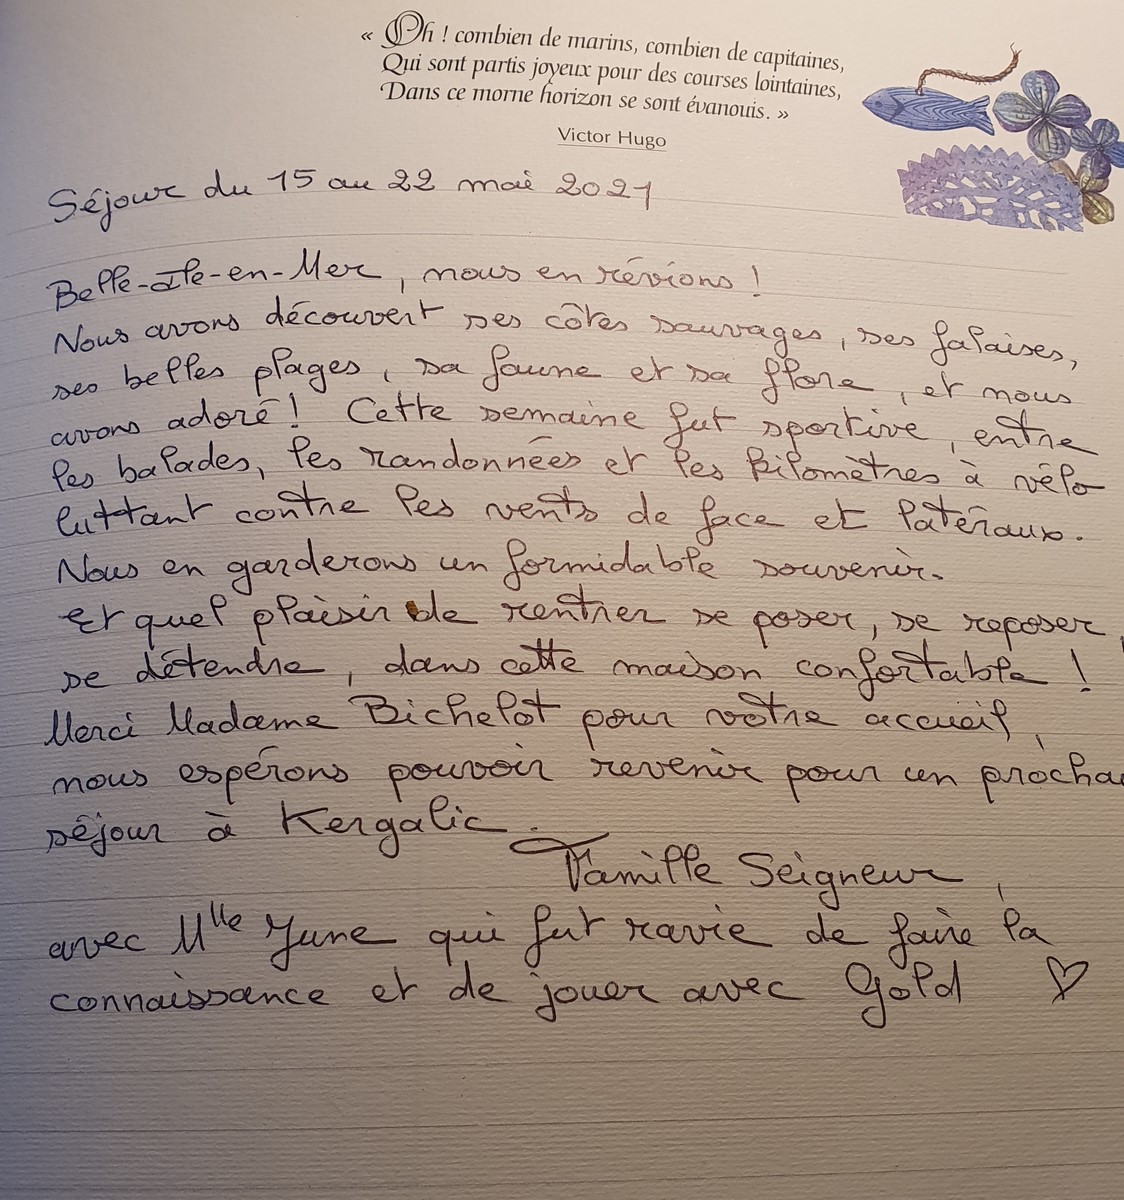 « Oh ! combien de marins, combien de capitaines,
Qui sont partis joyeux pour des courses lointaines,
Dans ce morne horizon se sont évanouis. »
Victor Hugo
Séjour du 15 au 22 mai 2021
Belle-Ile-en-Mer, nous en rêvions !
Nous avons découvert ses côtes sauvages, ses falaises,
ses belles plages, sa faune et sa flore, et nous
avons adoré ! Cette semaine fut sportive, entre
les balades, les randonnées et les kilomètres à vélo
luttant contre les vents de face et latéraux.
Nous en garderons un formidable souvenir.
Et quel plaisir de rentrer se poser, se reposer,
se détendre, dans cette maison confortable !
Merci Madame Bichelot pour votre accueil,
nous espérons pouvoir revenir pour un procha
séjour à Kergalic.
Famille Seigneur,
avec Mlle June qui fut ravie de faire la
connaissance et de jouer avec Gold ♡